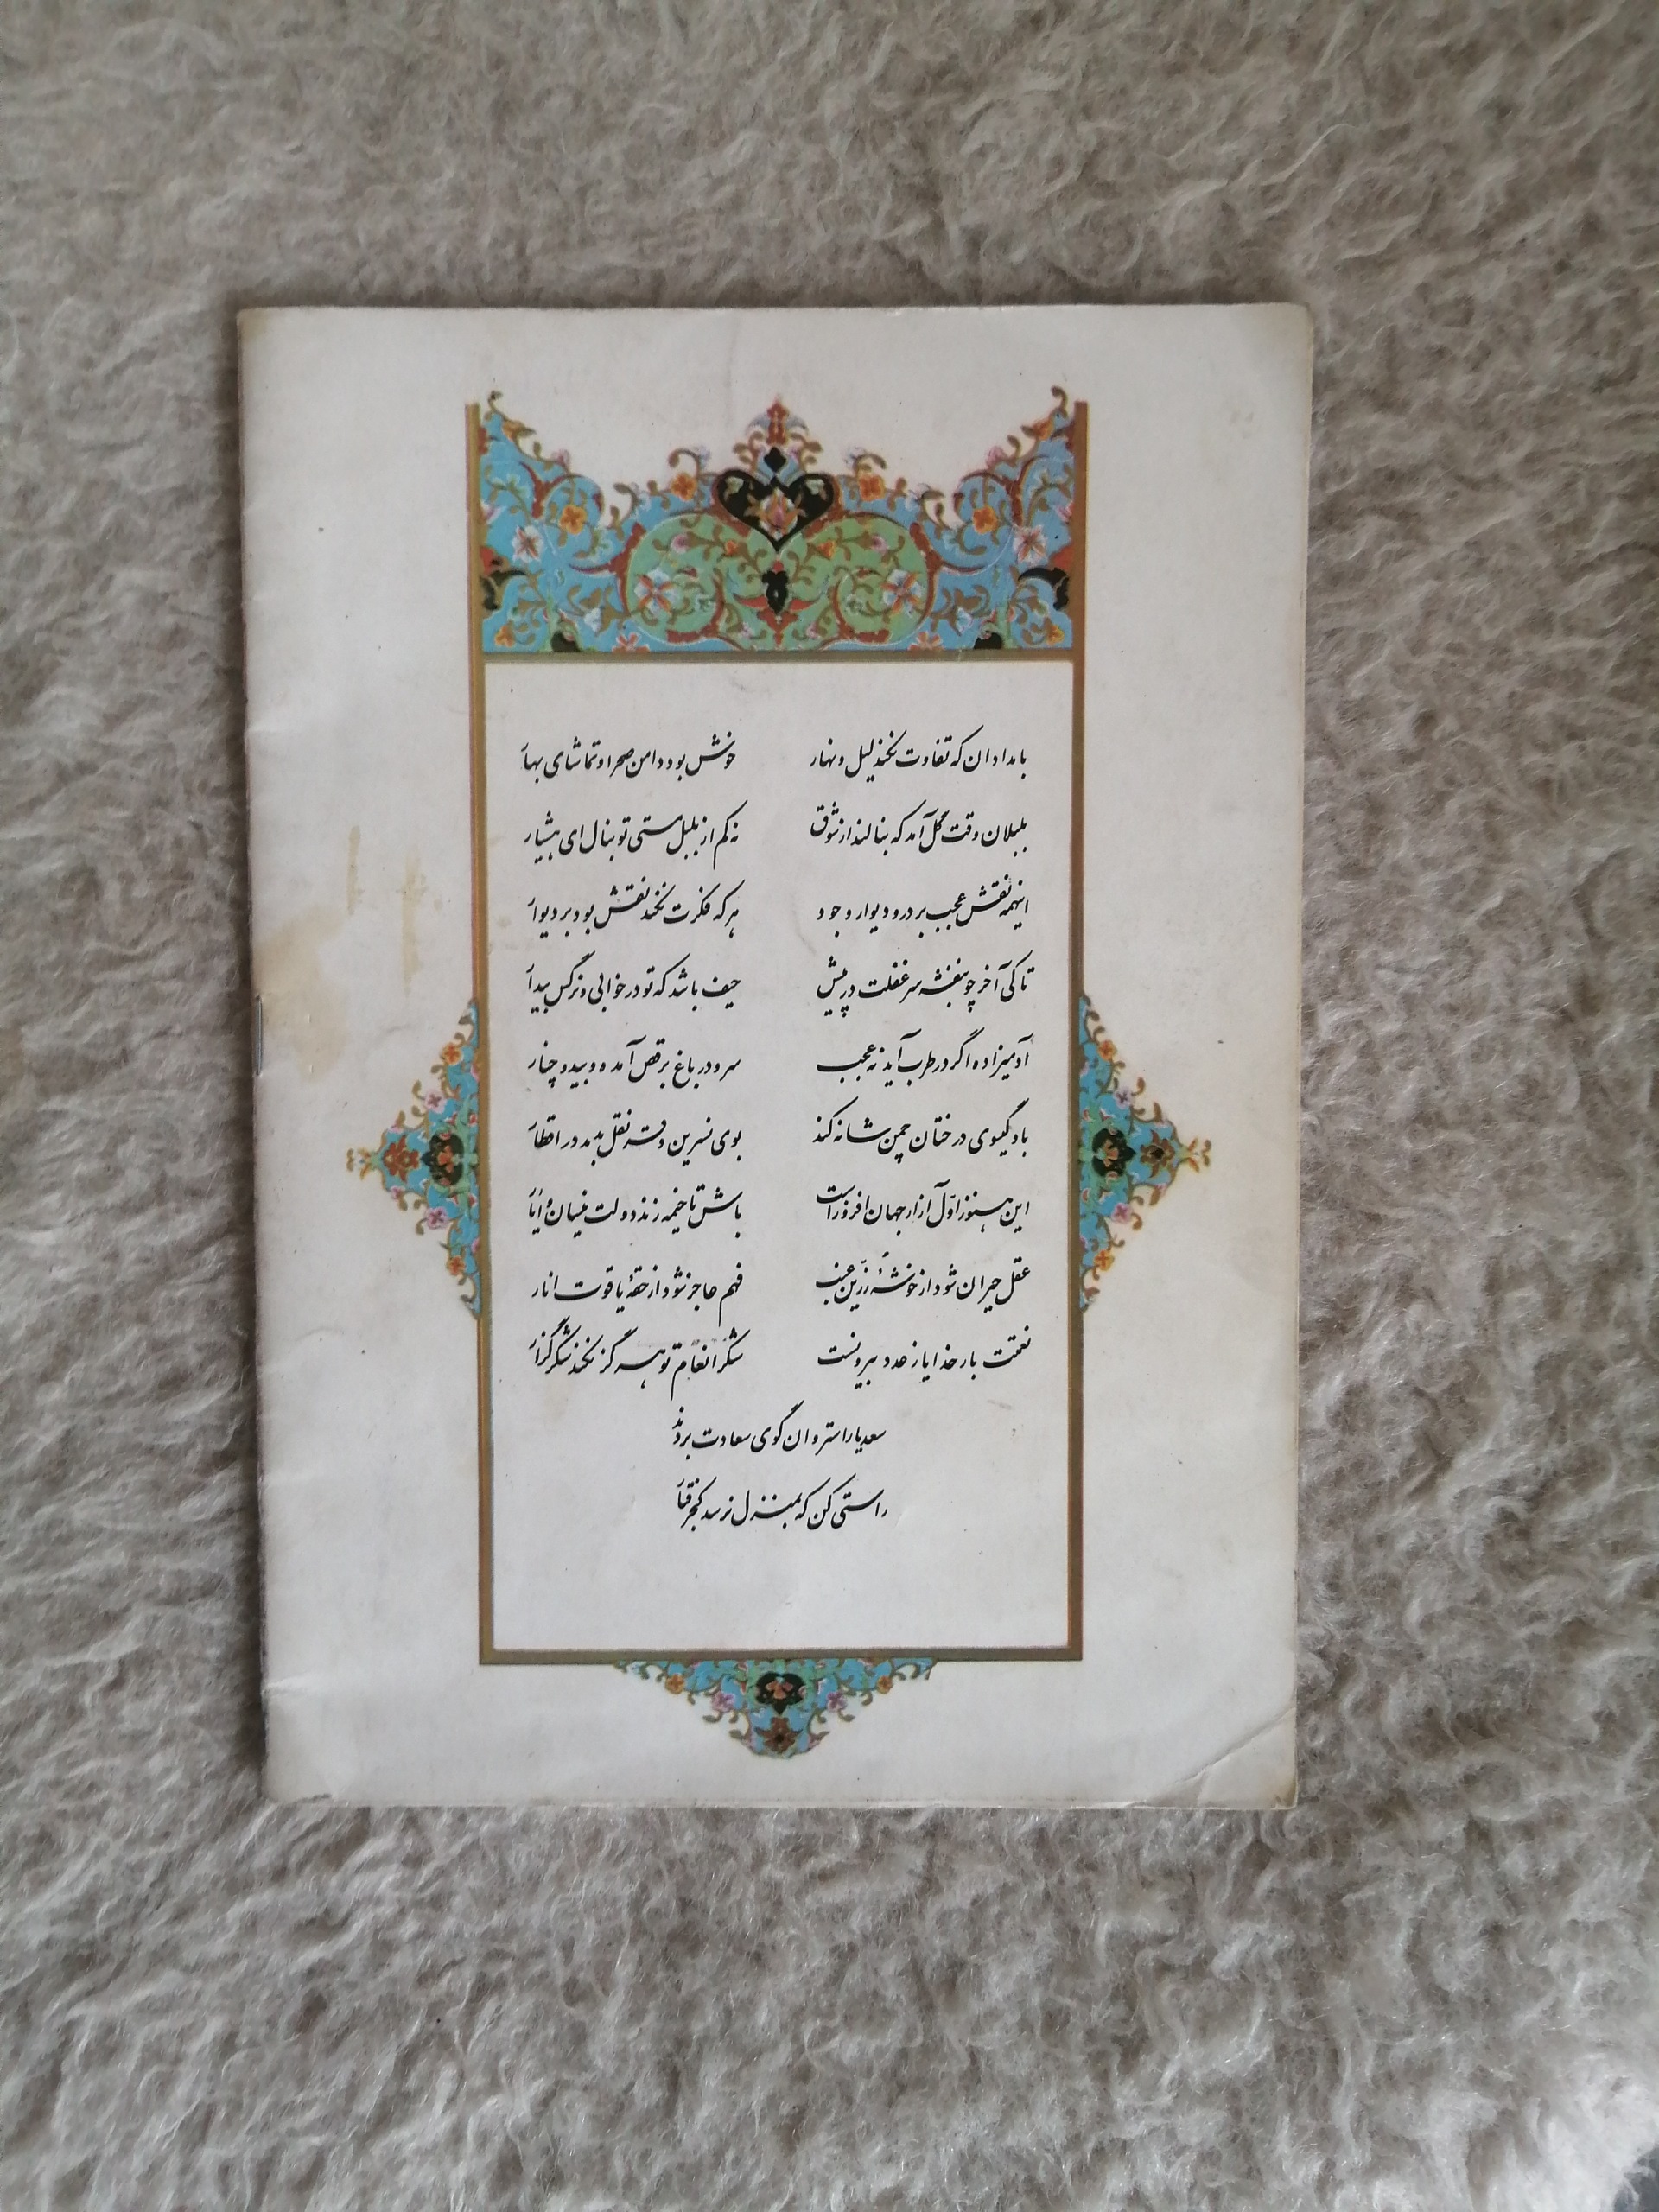 بامدادان که تفاوت نکند لیل و نهار خوش بود دامن صحرا و تماشای بهار
بلبلان وقت گل آمد که بنالند از شوق نه کم از بلبل مستی تو بنال ای هشیار
اینهمه نقش عجب بر در و دیوار وجود هر که فکرت نکند نقش بود بر دیوار
تا کی آخر چو بنفشه سر غفلت در پیش حیف باشد که تو در خوابی و نرگس بیدار
آدمیزاده اگر در طرب آید نه عجب سرو در باغ برقص آمده و بید و چنار
باد گیسوی درختان چمن شانه کند بوی نسرین و قرنفل بدمد در اقطار
این هنوز اوّل آزار جهان افروز است باش تا خیمه زند دولت نیسان و ایار
عقل حیران شود از خوشهٔ زرّین عنب فهم عاجز شود از حقهٔ یاقوت انار
نعمتت بار خدایا ز عدد بیرونست شکر انعام تو هرگز نکند شکرگزار
سعدیا راستروان گوی سعادت بردند
راستی کن که بمنزل نرسد کجرفتار